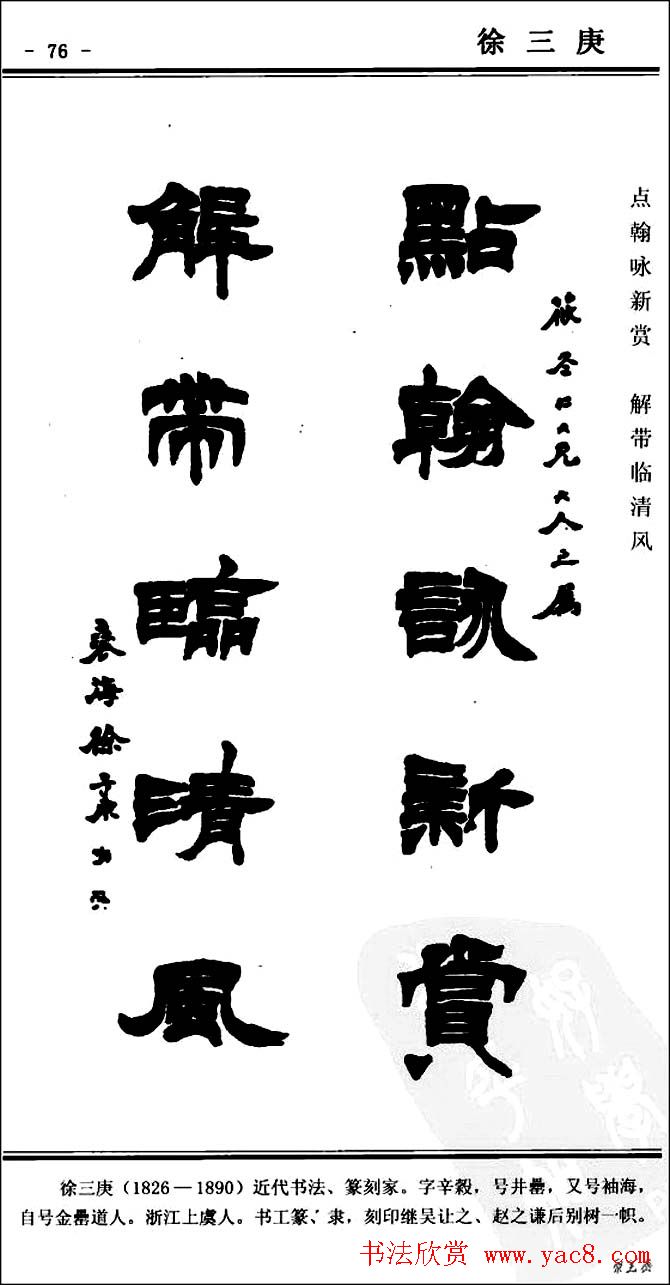 - 76 -
徐三庚
点翰咏新赏 解带临清风
點翰詠新賞
解帶臨清風
徐三庚（1826—1890）近代书法、篆刻家。字辛穀，号井罍，又号袖海，
自号金罍道人。浙江上虞人。书工篆、隶，刻印继吴让之、赵之谦后别树一帜。
书法欣赏 www.yac8.com